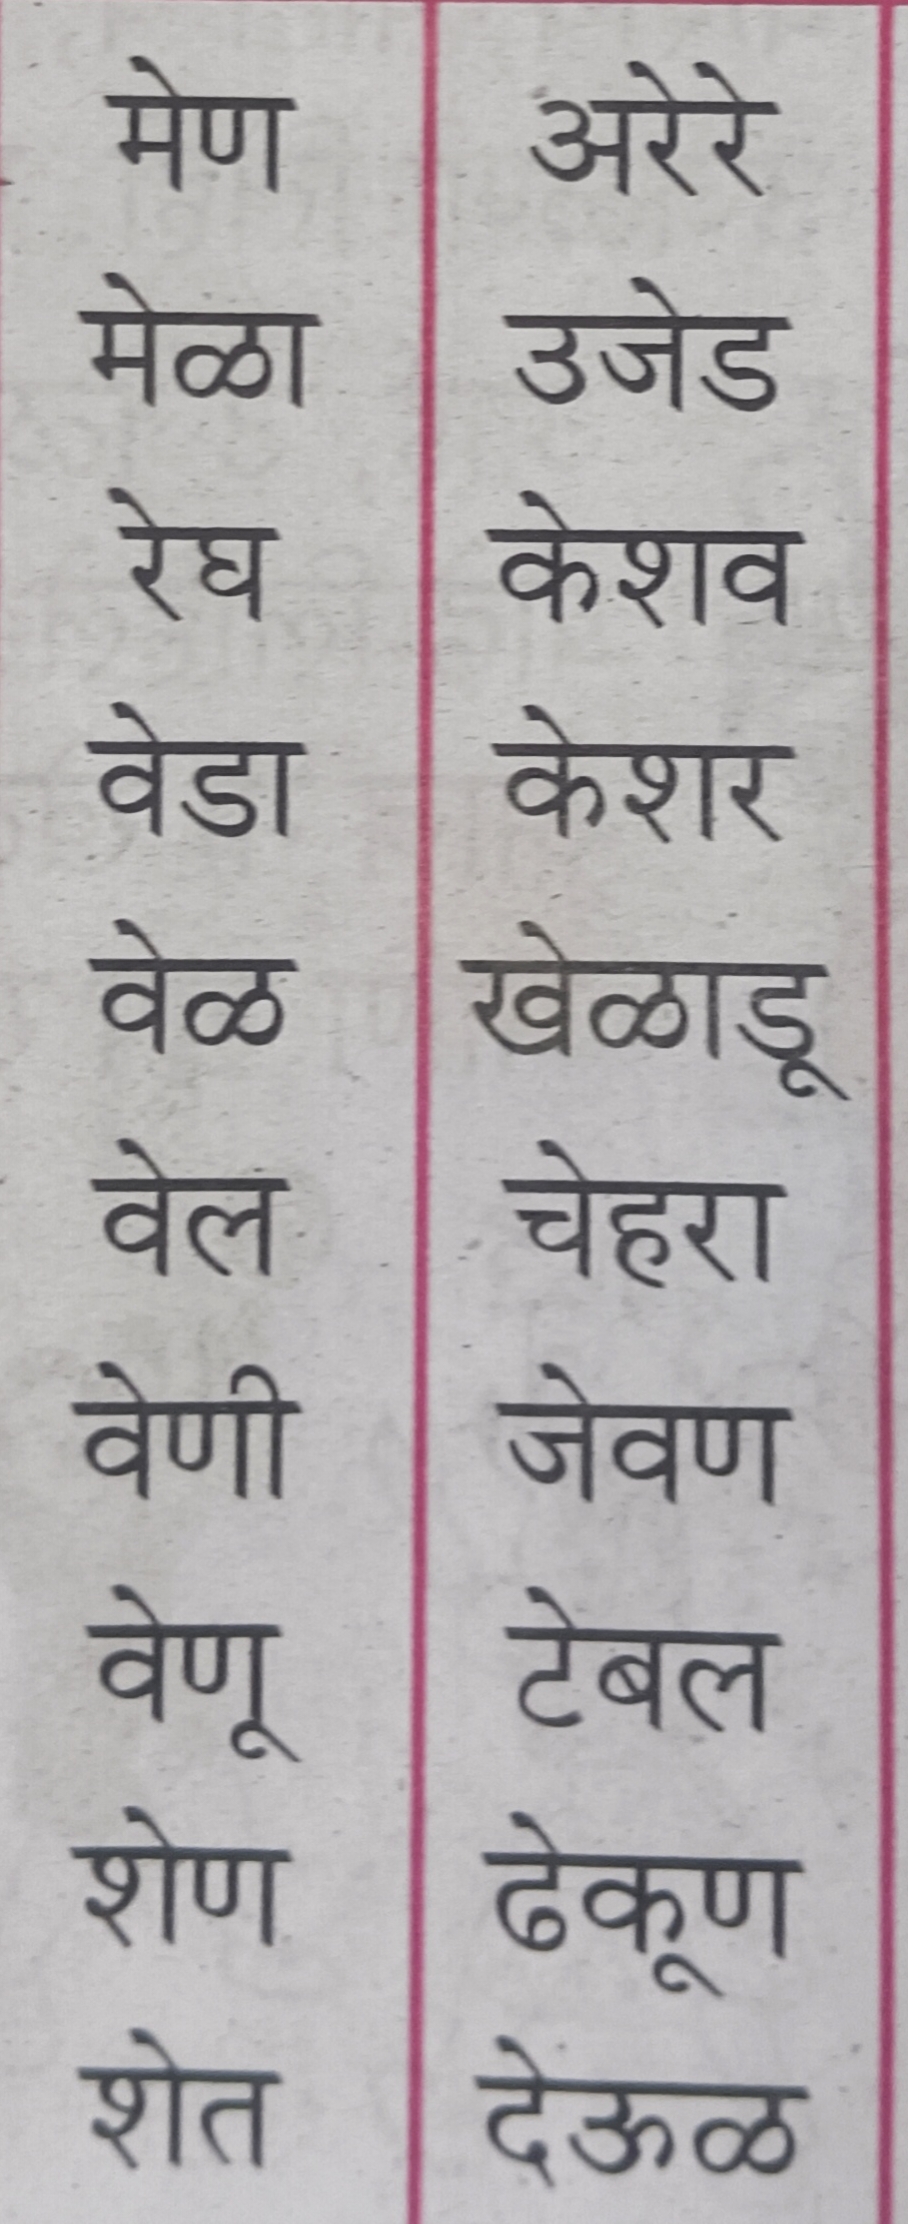 मेण अरेरे
मेळा उजेड
रेघ केशव
वेडा केशर
वेळ खेळाडू
वेल चेहरा
वेणी जेवण
वेणू टेबल
शेण ढेकूण
शेत देऊळ